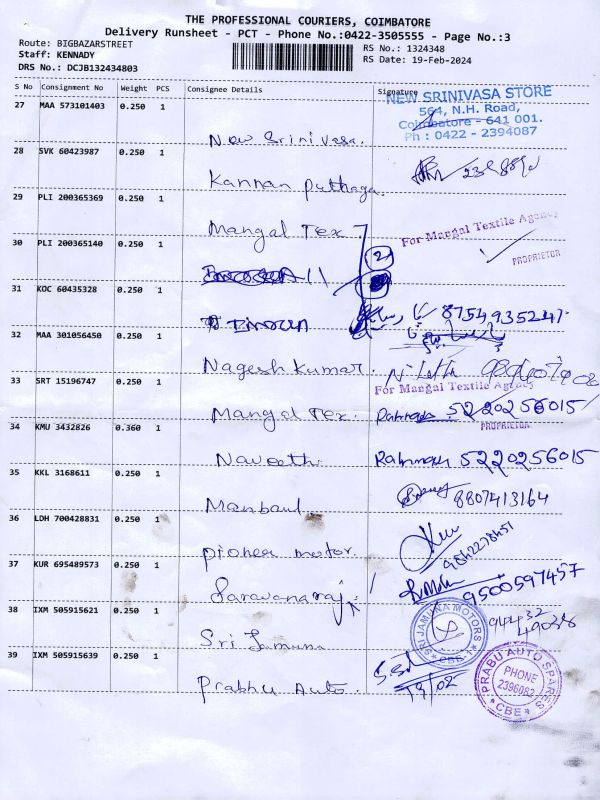 THE PROFESSIONAL COURIERS, COIMBATORE
Delivery Runsheet - PCT - Phone No.:0422-3505555 - Page No.:3
Route: BIGBAZARSTREET
RS No.: 1324348
Staff: KENNADY
RS Date: 19-Feb-2024
DRS No.: DCJB132434803
S No Consignment No Weight PCS Consignee Details Signature
27 MAA 573101403 0.250 1
NEW SRINIVASA STORE
564, N.H. Road,
Coimbatore - 641 001.
Ph : 0422 - 2394087
New Srinivasa.
28 SVK 60423987 0.250 1
Kannan Puthaga.
29 PLI 200365369 0.250 1
Mangal Tex
For Mangal Textile Agency
PROPRIETOR
30 PLI 200365140 0.250 1
11
2
31 KOC 60435328 0.250 1
32 MAA 301056450 0.250 1
Nagesh kumar.
33 SRT 15196747 0.250 1
For Mangal Textile Agency
Mangal Tex. 5220256015
PROPRIETOR
34 KMU 3432826 0.360 1
Naveeth. 5220256015
35 KKL 3168611 0.250 1
Manbaul 8807413164
36 LDH 700428831 0.250 1
Pioneer motor.
37 KUR 695489573 0.250 1
Saravanaraj 9500597457
38 IXM 505915621 0.250 1
Sri Jamuna
SRI JAMUNA MOTORS
CBE-1
39 IXM 505915639 0.250 1
Prabhu Auto.
19/02
PRABU AUTO SPARES
PHONE
2396082
CBE